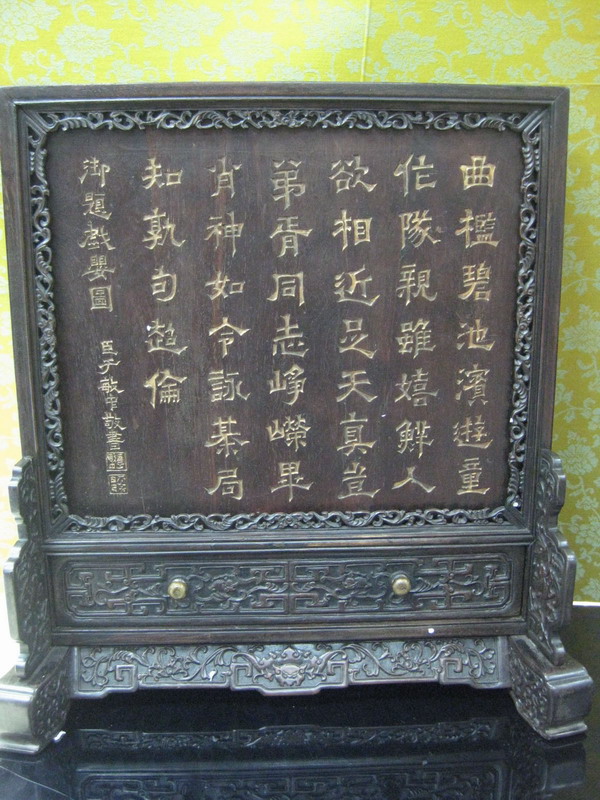 曲檻碧池濱遊童
作隊親雖嬉鮮人
欲相近足天真豈
弟胥同志崢嶸畢
肖神如令詠棊局
知孰句超倫
御題戲嬰圖
臣于敏中敬書